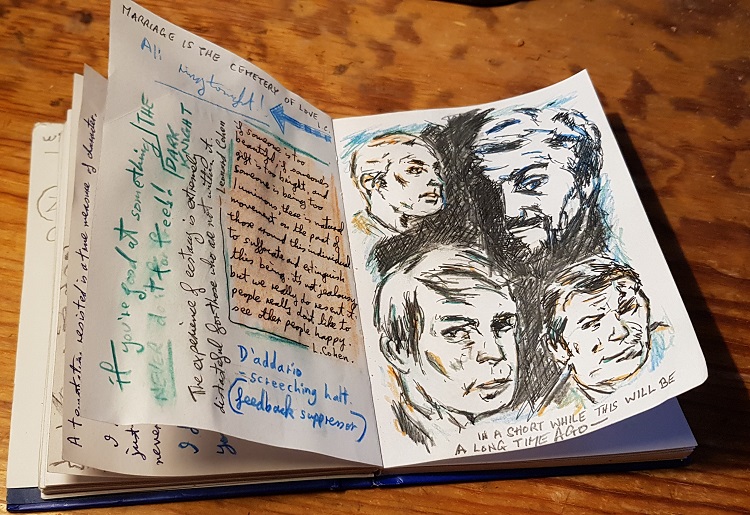 MARRIAGE IS THE CEMETERY OF LOVE L.C.
All
ring tonight!
If you're good at something
NEVER do it for free!
THE
DARK
KNIGHT
The experience of ecstasy is extremely
distasteful for those who are not within it.
Leonard Cohen
If someone is too
beautiful, if somebody's
gift is too bright, and
someone is being too
luminous, there's a natural
movement on the part of
those around this individual
to suffocate and extinguish
this being. It's not jealousy
but we really do resent it.
people really don't like to
see other people happy.
L. Cohen.
D'addario
screeching halt.
(feedback suppressor)
A temptation resisted is a true measure of character.
I
just
never
I
yo
IN A SHORT WHILE THIS WILL BE
A LONG TIME AGO